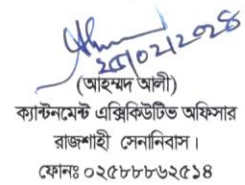 ২৫/০২/২০২৪
(আহম্মদ আলী)
ক্যান্টনমেন্ট এক্সিকিউটিভ অফিসার
রাজশাহী সেনানিবাস।
ফোনঃ ০২৫৮৮৮৬২৫১৪